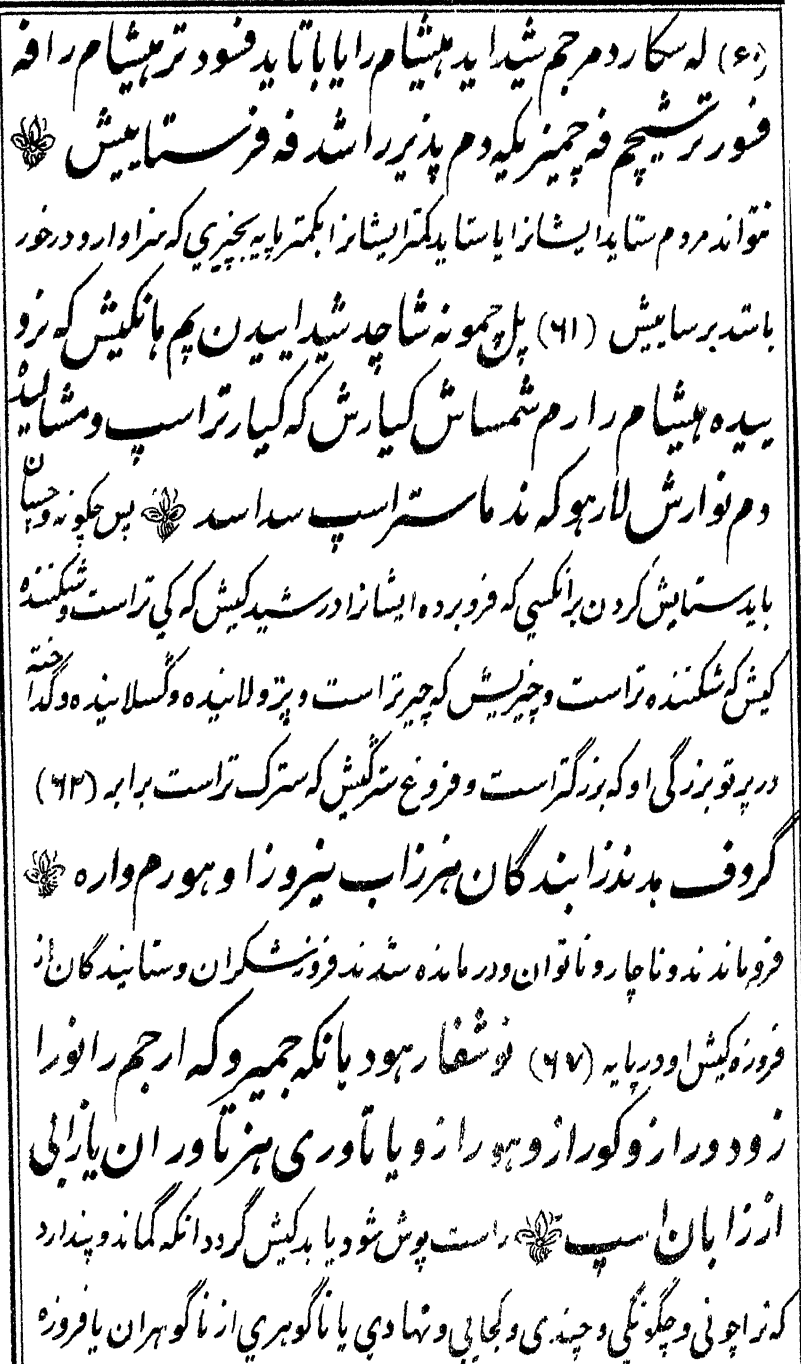 (۶۰) له سکارد مرجم شیداید هیشام رایا باتاید فسود تر هیشام را فه
فنور تر شیچم فه چمیز یکه دم پذیر راشد فه فرستابیش
نتواند مردم ستاید ایشانرا یا ستاید کمتر ایشانرا بکمتر پایه بچیزی که سزاوار و درخور
باشد برسابیش (۶۱) پل چمونه شاچد شیداییدن پم هانکیش که نرو
بیده هیشام را رم شمساش کیارش که کیار تر اسپ و مشالیند
دم نوارش لارهو که ندماستر اسپ سداسد پس چگونه و چسان
باید ستایش کردن برآنکسی که فرو برده ایشانرا در رشید کیش که کی تراست و شکننده
کیش که شکننده تراست و چیریش که چیر تراست و پژولانیده و گسلانیده و گداخته
در پرتو بزرگی او که بزرگتر است و فروغ سترگیش که سترک تراست برابر (۶۲)
گروف مدندزا بندگان هنرزاب نیروزا و هورم واره
فروماندند و ناچار و ناتوان و درمانده شدند فروزشگران و ستایندگان از
فروزه کیش او در پایه (۶۷) نوشفا رهود بانکه جمیرو که ارجم را نورا
زود و رازو کورازو هو رازو یا تاوری هنر تاوران یا زابی
از زابان اسپ راست پوش شود یا بدکیش گردد انکه گماند و پندارد
که ترا چونی و چگونگی و چندی و کجایی و نهادی یا ناگوهری از ناگوهران یا فروزه